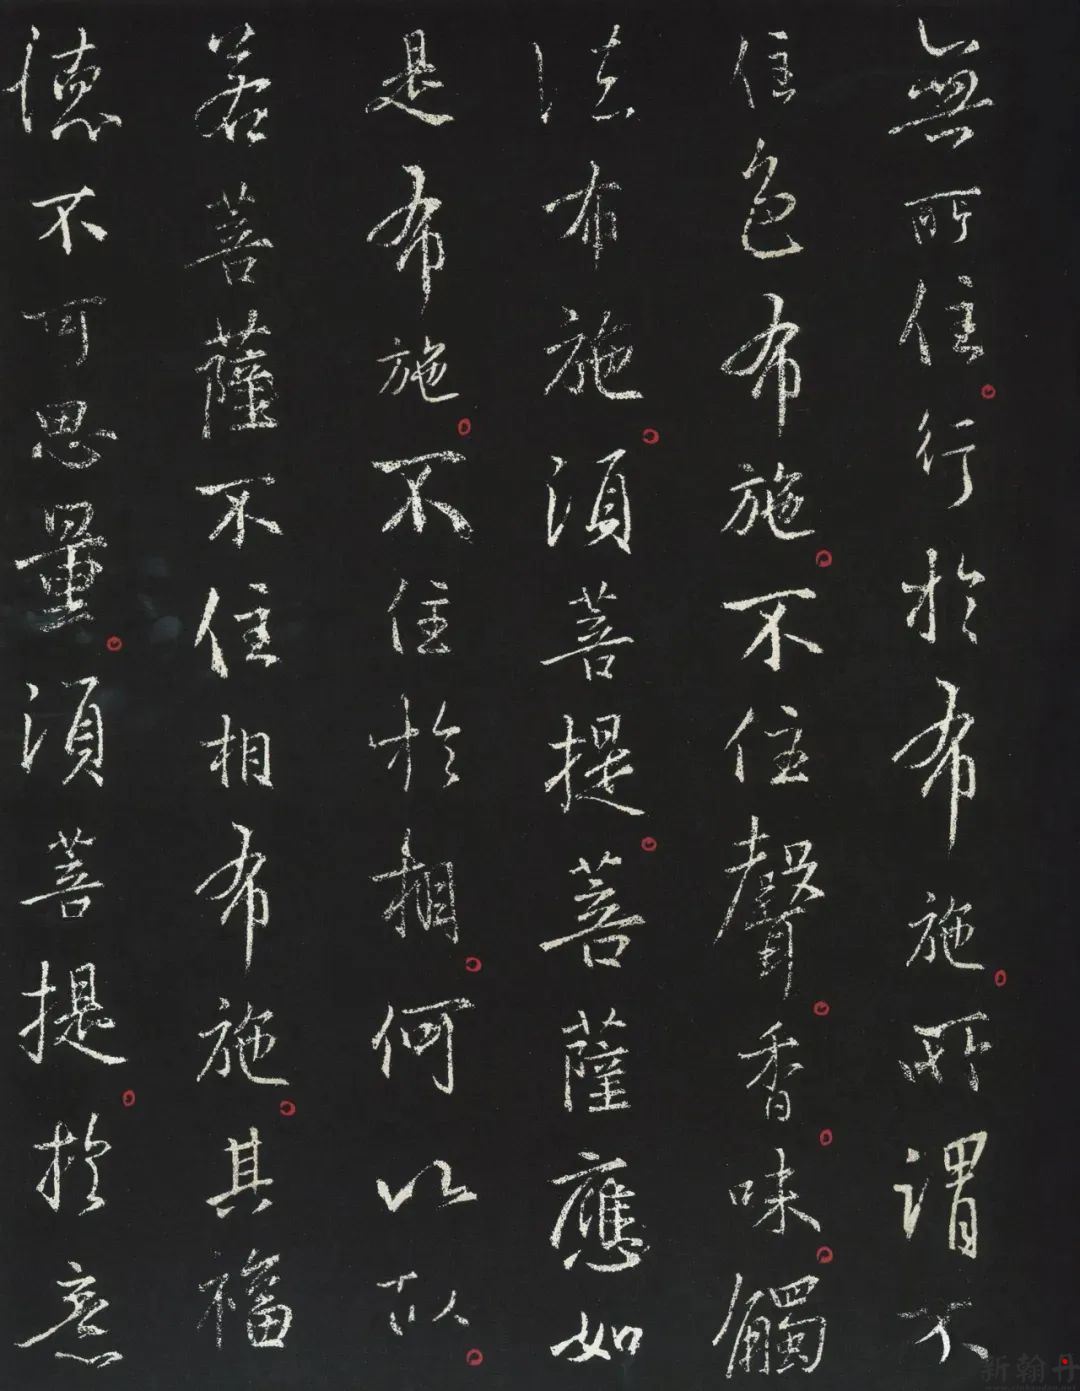 無所住。行於布施。所謂不
住色布施。不住聲。香。味。觸
法布施。須菩提。菩薩應如
是布施。不住於相。何以故。
若菩薩不住相布施。其福
德不可思量。須菩提。於意
新翰丹